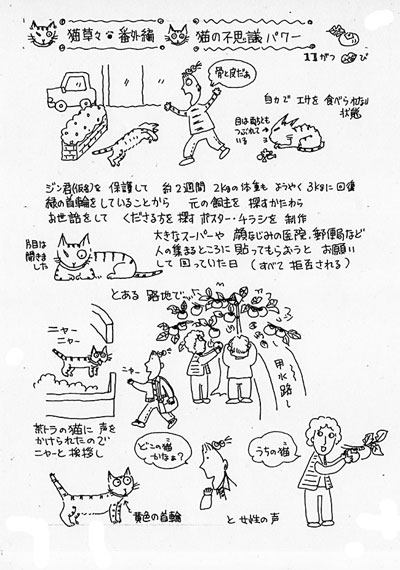 猫草々 番外編 猫の不思議パワー
11がつ び
骨と皮だぁ
自力で エサを 食べられない
状態
目は両方とも
つぶれて
いる
ジン君(仮名)を 保護して 約2週間 2kgの体重も ようやく 3kgに回復
緑の首輪をしていることから 元の飼主を 探すかたわら
お世話をして くださる方を 探す ポスター・チラシを 制作
大きなスーパーや 顔なじみの医院、郵便局など
人の集まるところに 貼ってもらおうと お願い
して 回っていた日 (すべて 拒否される)
片目は
開きま
した
とある 路地で
ニャー
ニャー
ニャー
用水路
茶トラの猫に 声を
かけられたので
ニャーと 挨拶し
どこの猫
かなぁ?
うちの猫
黄色の首輪
と 女性の声